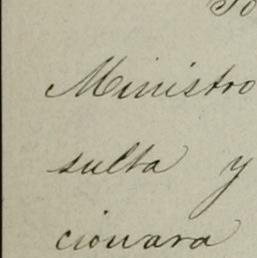 Ministro
sulta y
cionara